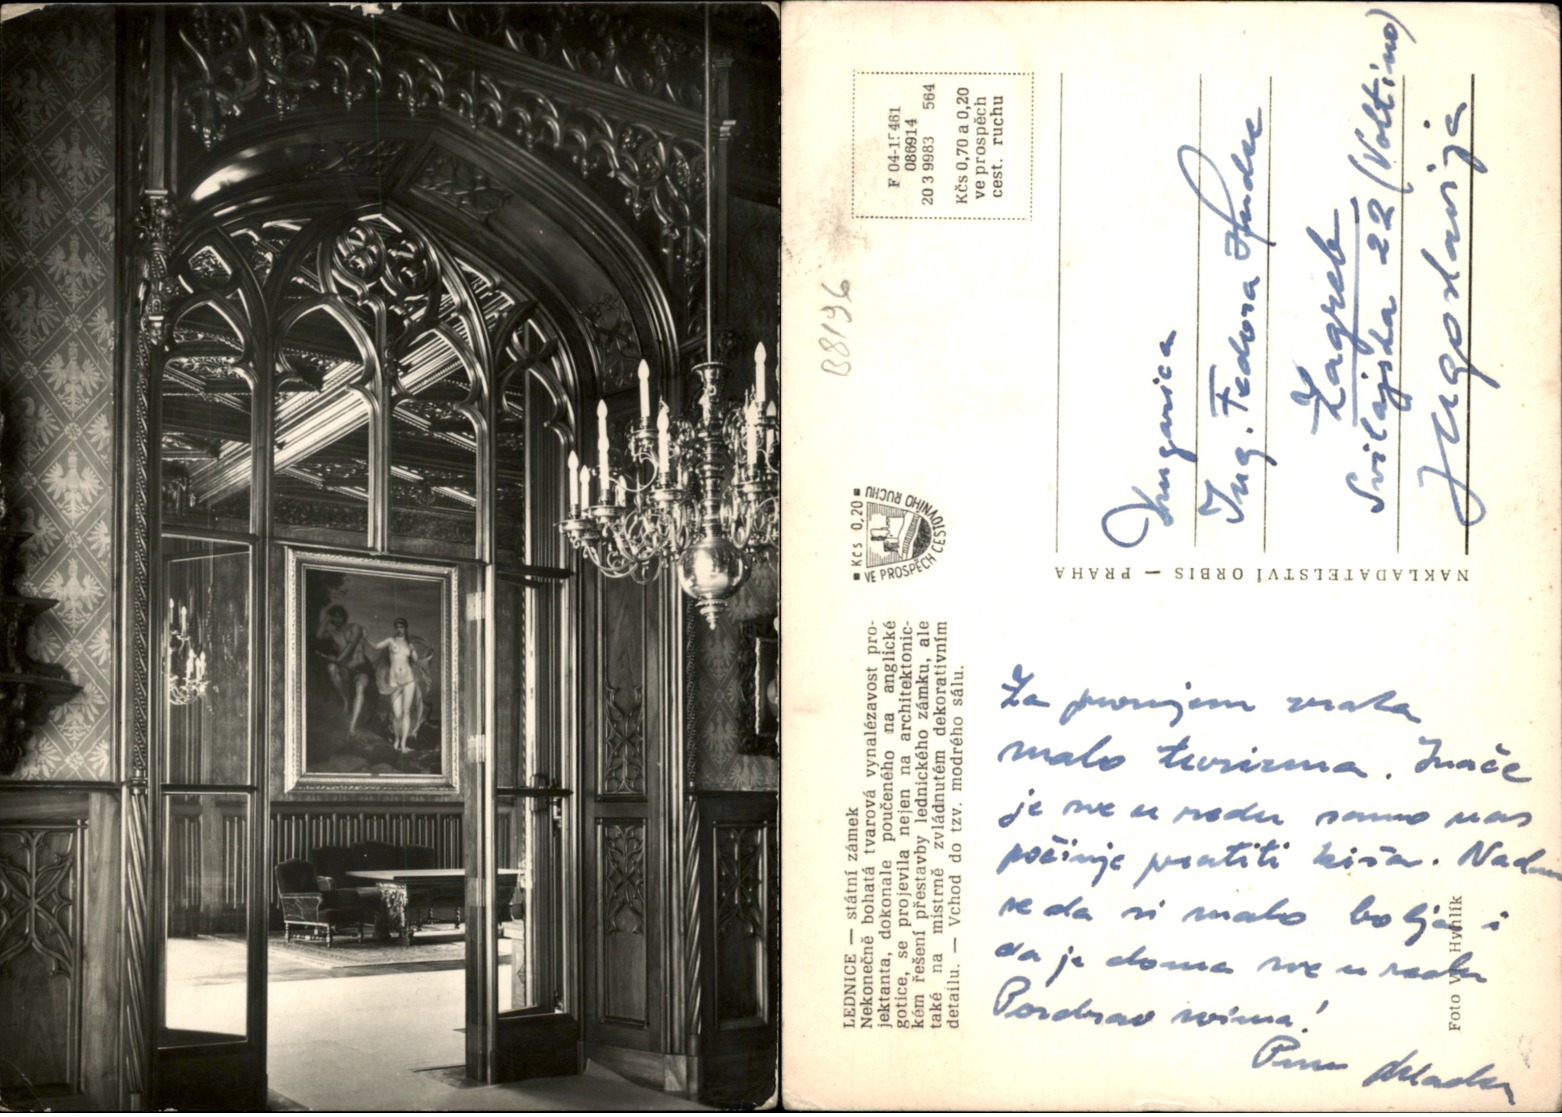 LEDNICE — státní zámek
Nekonečně bohatá tvarová vynalézavost pro-
jektanta, dokonale poučeného na anglické
gotice, se projevila nejen na architektonic-
kém řešení přestavby lednického zámku, ale
také na mistrně zvládnutém dekorativním
detailu. — Vchod do tzv. modrého sálu.
KČS 0,20
VE PROSPĚCH CESTOVNÍHO RUCHU
F 04-15461
086914
20 3 9983 564
Kčs 0,70 a 0,20
ve prospěch
cest. ruchu
B8196
NAKLADATELSTVÍ ORBIS — PRAHA
Ing. Fedora
Zagreb
Svilajska 22 (Voltino)
Jugoslavija
Za promjenu malo
malo turizma. Inače
je sve u redu samo nas
počinje pratiti kiša. Nadam
se da si malo bolja i
da je doma sve u redu
Pozdrav svima!
Foto V. Hyhlík